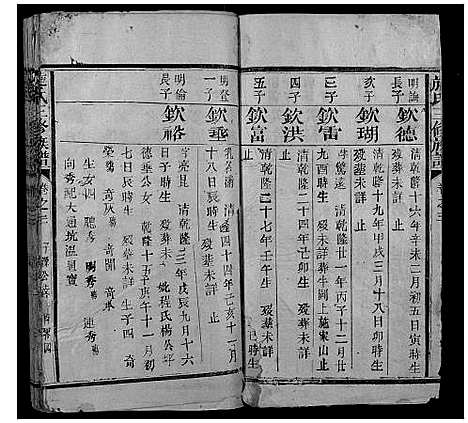 施氏三修族譜
明論
長子
欽德
清乾隆十六年辛未二月初五日寅時生
歿葬未詳 止
次子
欽瑚
清乾隆十九年甲戌三月十八日卯時生
歿葬未詳 止
三子
欽雷
字驚遠 清乾隆廿一年丙子十二月廿
八日卯時生 歿未詳葬牛圈上施家山止
四子
欽洪
清乾隆二十四年己卯生 歿葬未詳
止
五子
欽富
清乾隆二十七年壬午生 歿葬未詳
止
明登
一子
欽華
清乾隆四十四年己亥十一月
十八日辰時生 歿葬未詳 止
明倫
長子
欽裕
清乾隆十三年戊辰九月十六
日辰時生 歿葬未詳 妣程氏楊公坪
德華公女 乾隆十五年庚午十一月
七日辰時生 歿葬未詳 生子四 奇
生女四 聰秀 明秀 連秀
施氏三修族譜
卷之三